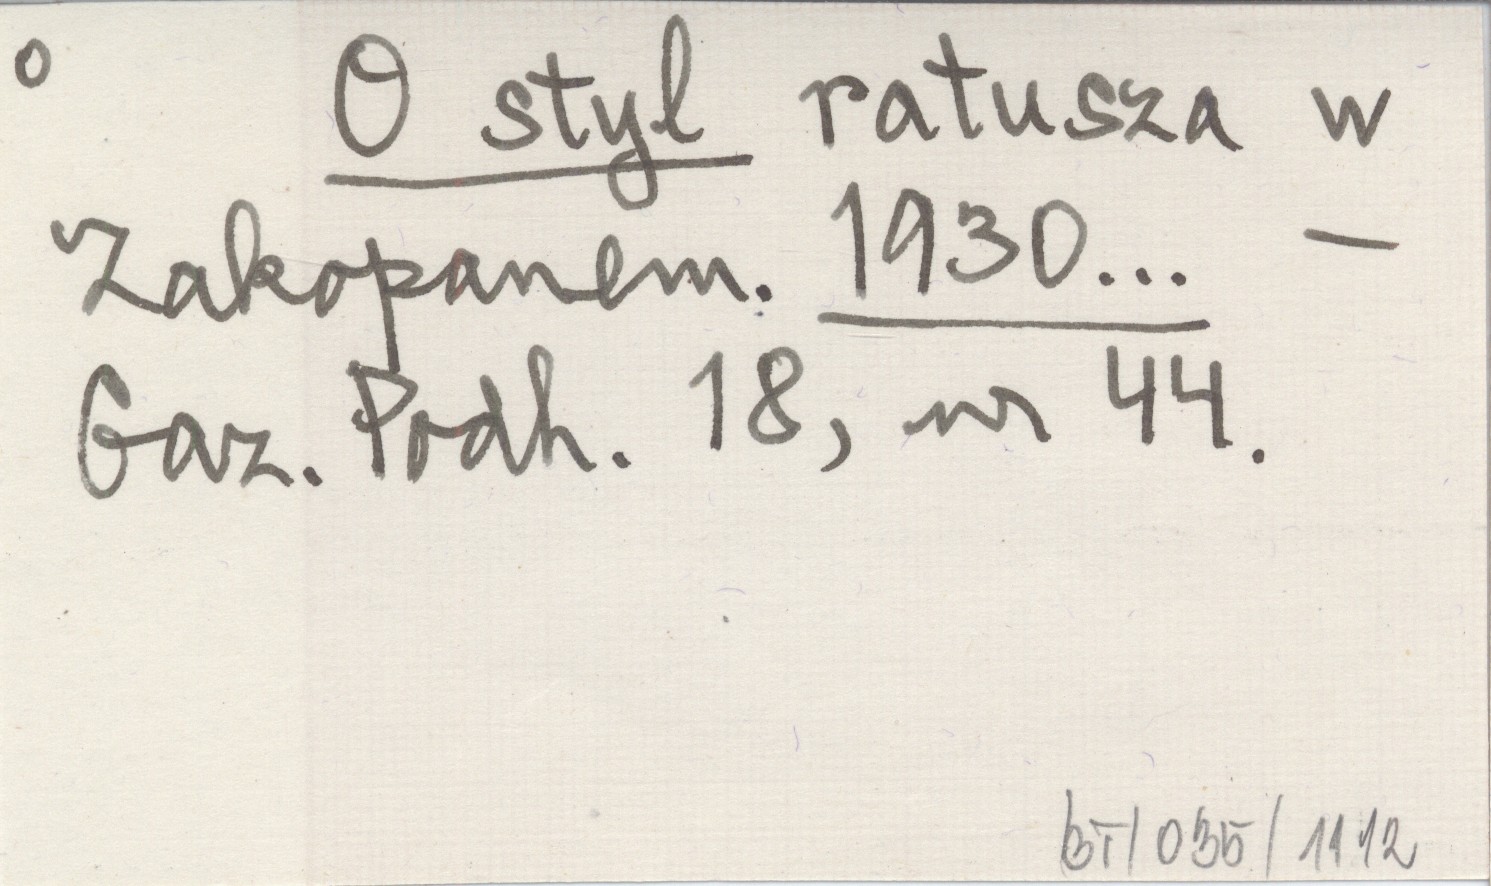 o O styl ratusza w
Zakopanem. 1930... —
Gaz. Podh. 18, nr 44.
BT/035/1112